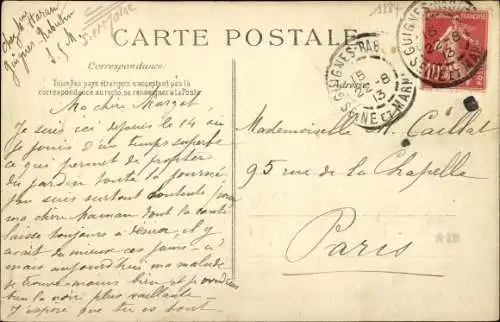 Chez Mme Haran
Guignes Rabutin
S. & M.
Sept Marne
1884
CARTE POSTALE
Correspondance:
Tous les pays étrangers n'acceptent pas la
correspondance au recto. Se renseigner à la Poste
Adresse
GUIGNES-RAB
15
22-8
13
SEINE ET MARNE
GUIGNES-RABUTIN
15
22-8
13
SEINE ET MARNE
Ma chère Margot
Je suis ici depuis le 14 où
je jouis d'un temps superbe
ce qui permet de profiter
du jardin toute la journée
j'en suis surtout contente pour
ma chère maman dont la santé
laisse toujours à désirer, il y
avait du mieux ces jours-ci
mais aujourd'hui ma malade
se trouve moins bien et je voudrais
bien la voir plus vaillante.
J'espère que tu es tout
Mademoiselle M. Caillat
95 rue de la Chapelle
Paris